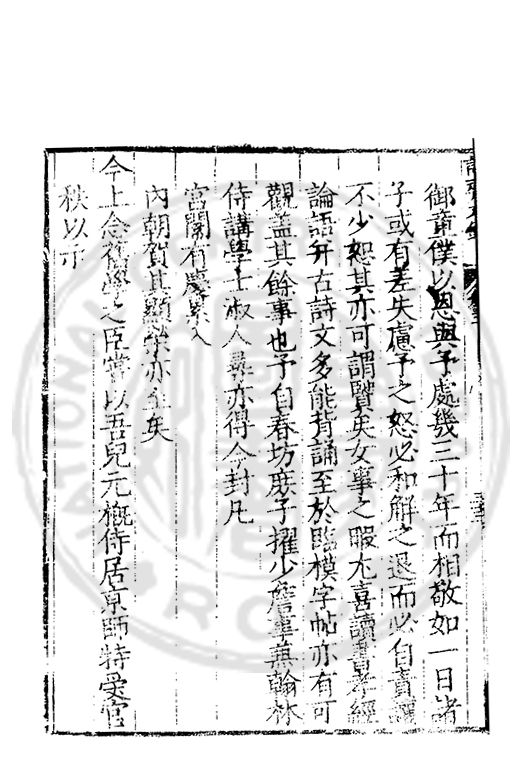 御童僕以恩與予處幾三十年而相敬如一日諸
子或有差失慮予之怒必和解之退而必自責讓
不少恕其亦可謂賢矣女事之暇尤喜讀書孝經
論語并古詩文多能背誦至於臨模字帖亦有可
觀蓋其餘事也予自春坊庶子擢少詹事兼翰林
侍講學士淑人尋亦得今封凡
宮闈有慶累入
內朝賀其顯榮亦至矣
今上念舊學之臣嘗以吾兒元概侍居京師特受官
秩以示